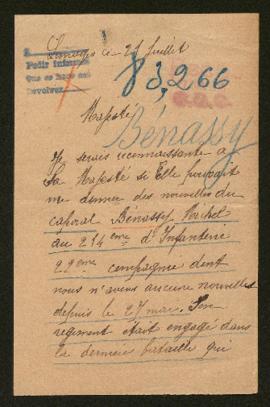 Limoges ce 21 Juillet
Pedir informe
Que se hace así
Devolver
83,266
Majesté
Bénassy
Je serais reconnaissante à
Sa Majesté si Elle pouvait
me donner des nouvelles du
caporal Bénassy Michel
du 214eme d'Infanterie
22eme compagnie dont
nous n'avons aucune nouvelles
depuis le 27 mai. Son
regiment était engagé dans
la dernière bataille qui